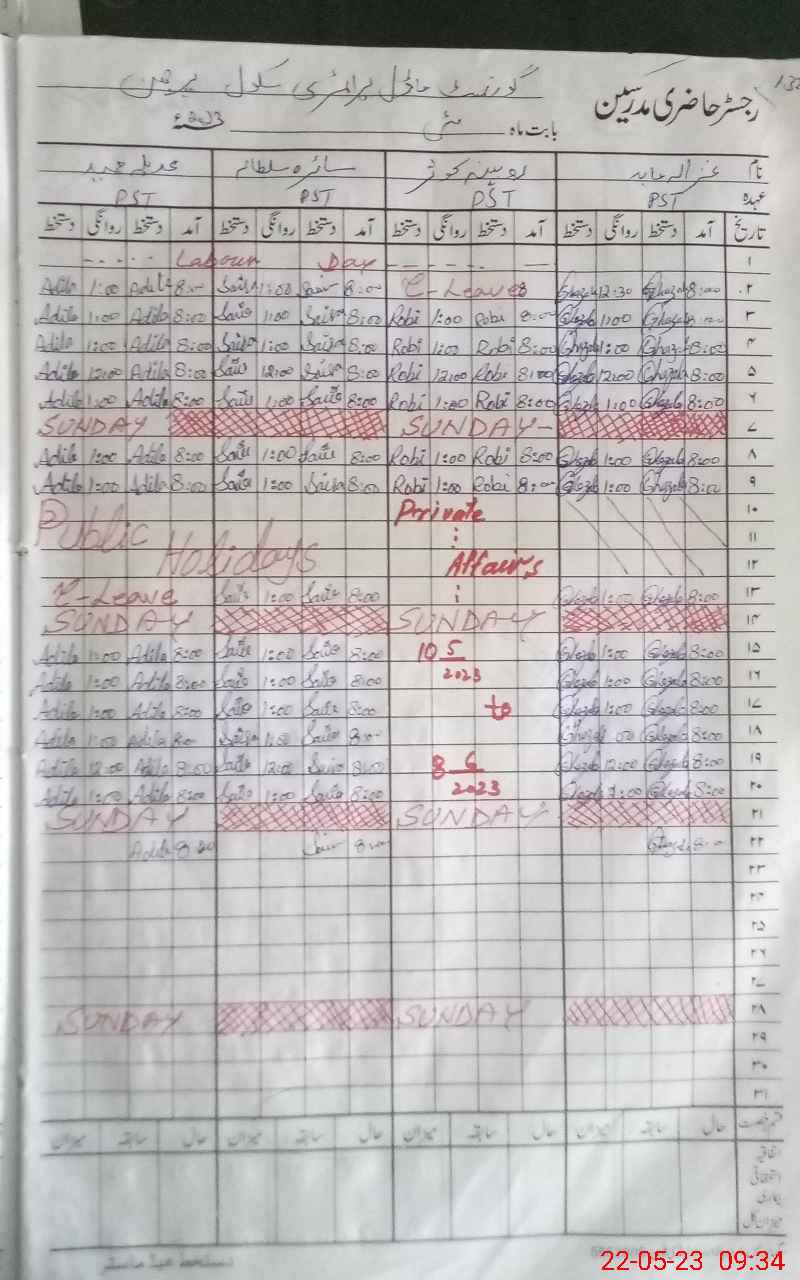 رجسٹر حاضری مدرسین
گورنمنٹ ماڈل پرائمری سکول
بابت ماہ مئی 2023ء
نام غزالہ سائرہ سلطانہ
عہدہ PST PST PST PST
تاریخ آمد دستخط روانگی دستخط آمد دستخط روانگی دستخط آمد دستخط روانگی دستخط آمد دستخط روانگی دستخط
۱ Labour Day
۲ 8:00 Ghazala 12:30 Ghazala C-Leave 8:00 Saira 1:00 Saira 8:00 Adila 1:00 Adila
۳ Ghazala 1:00 Ghazala 8:00 Robi 1:00 Robi 8:00 Saira 1:00 Saira 8:00 Adila 1:00 Adila
۴ 8:00 Ghazala 1:00 Ghazala 8:00 Robi 1:00 Robi 8:00 Saira 1:00 Saira 8:00 Adila 1:00 Adila
۵ 8:00 Ghazala 12:00 Ghazala 8:00 Robi 12:00 Robi 8:00 Saira 12:00 Saira 8:00 Adila 12:00 Adila
۶ 8:00 Ghazala 1:00 Ghazala 8:00 Robi 1:00 Robi 8:00 Saira 1:00 Saira 8:00 Adila 1:00 Adila
۷ SUNDAY SUNDAY
۸ 8:00 Ghazala 1:00 Ghazala 8:00 Robi 1:00 Robi 8:00 Saira 1:00 Saira 8:00 Adila 1:00 Adila
۹ 8:00 Ghazala 1:00 Ghazala 8:00 Robi 1:00 Robi 8:00 Saira 1:00 Saira 8:00 Adila 1:00 Adila
۱۰ Private
۱۱ Public
۱۲ Affairs Holidays
۱۳ 8:00 Ghazala 1:00 Ghazala 8:00 Saira 1:00 Saira C-Leave
۱۴ SUNDAY SUNDAY
۱۵ 8:00 Ghazala 1:00 Ghazala 10 5 8:00 Saira 1:00 Saira 8:00 Adila 1:00 Adila
۱۶ 8:00 Ghazala 1:00 Ghazala 2023 8:00 Saira 1:00 Saira 8:00 Adila 1:00 Adila
۱۷ 8:00 Ghazala 1:00 Ghazala to 8:00 Saira 1:00 Saira 8:00 Adila 1:00 Adila
۱۸ Ghazala 8:00 Saira 1:00 Saira 8:00 Adila 1:00 Adila
۱۹ 8:00 Ghazala 12:00 Ghazala 8 6 8:00 Saira 12:00 Saira 8:00 Adila 12:00 Adila
۲۰ 8:00 Ghazala 1:00 Ghazala 2023 8:00 Saira 1:00 Saira 8:00 Adila 1:00 Adila
۲۱ SUNDAY SUNDAY
۲۲ 8:00 Ghazala 8:00 Saira 8:00 Adila
۲۳
۲۴
۲۵
۲۶
۲۷
۲۸ SUNDAY SUNDAY
۲۹
۳۰
۳۱
قسم رخصت حال سابقہ میزان حال سابقہ میزان حال سابقہ میزان حال سابقہ میزان
اتفاقیہ
استحقاقی
بیماری
میزان کل
دستخط ہیڈ ماسٹر
22-05-23 09:34